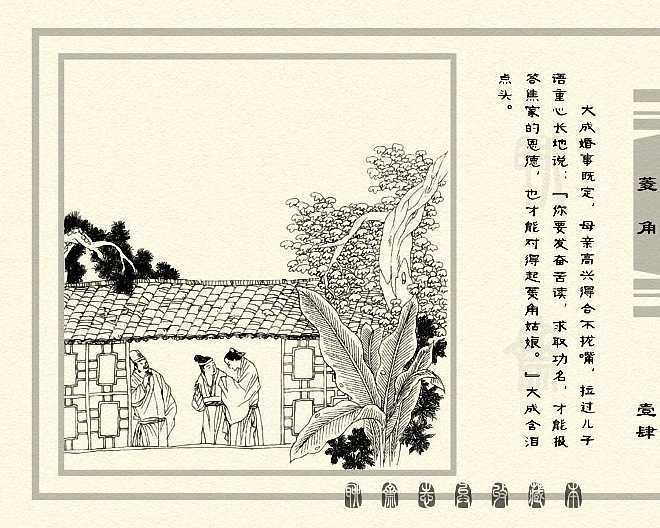 大成婚事既定，母亲高兴得合不拢嘴，拉过儿子
语重心长地说：“你要发奋苦读，求取功名，才能报
答焦家的恩德，也才能对得起菱角姑娘。”大成含泪
点头。
菱角
壹肆
聊斋志异收藏本